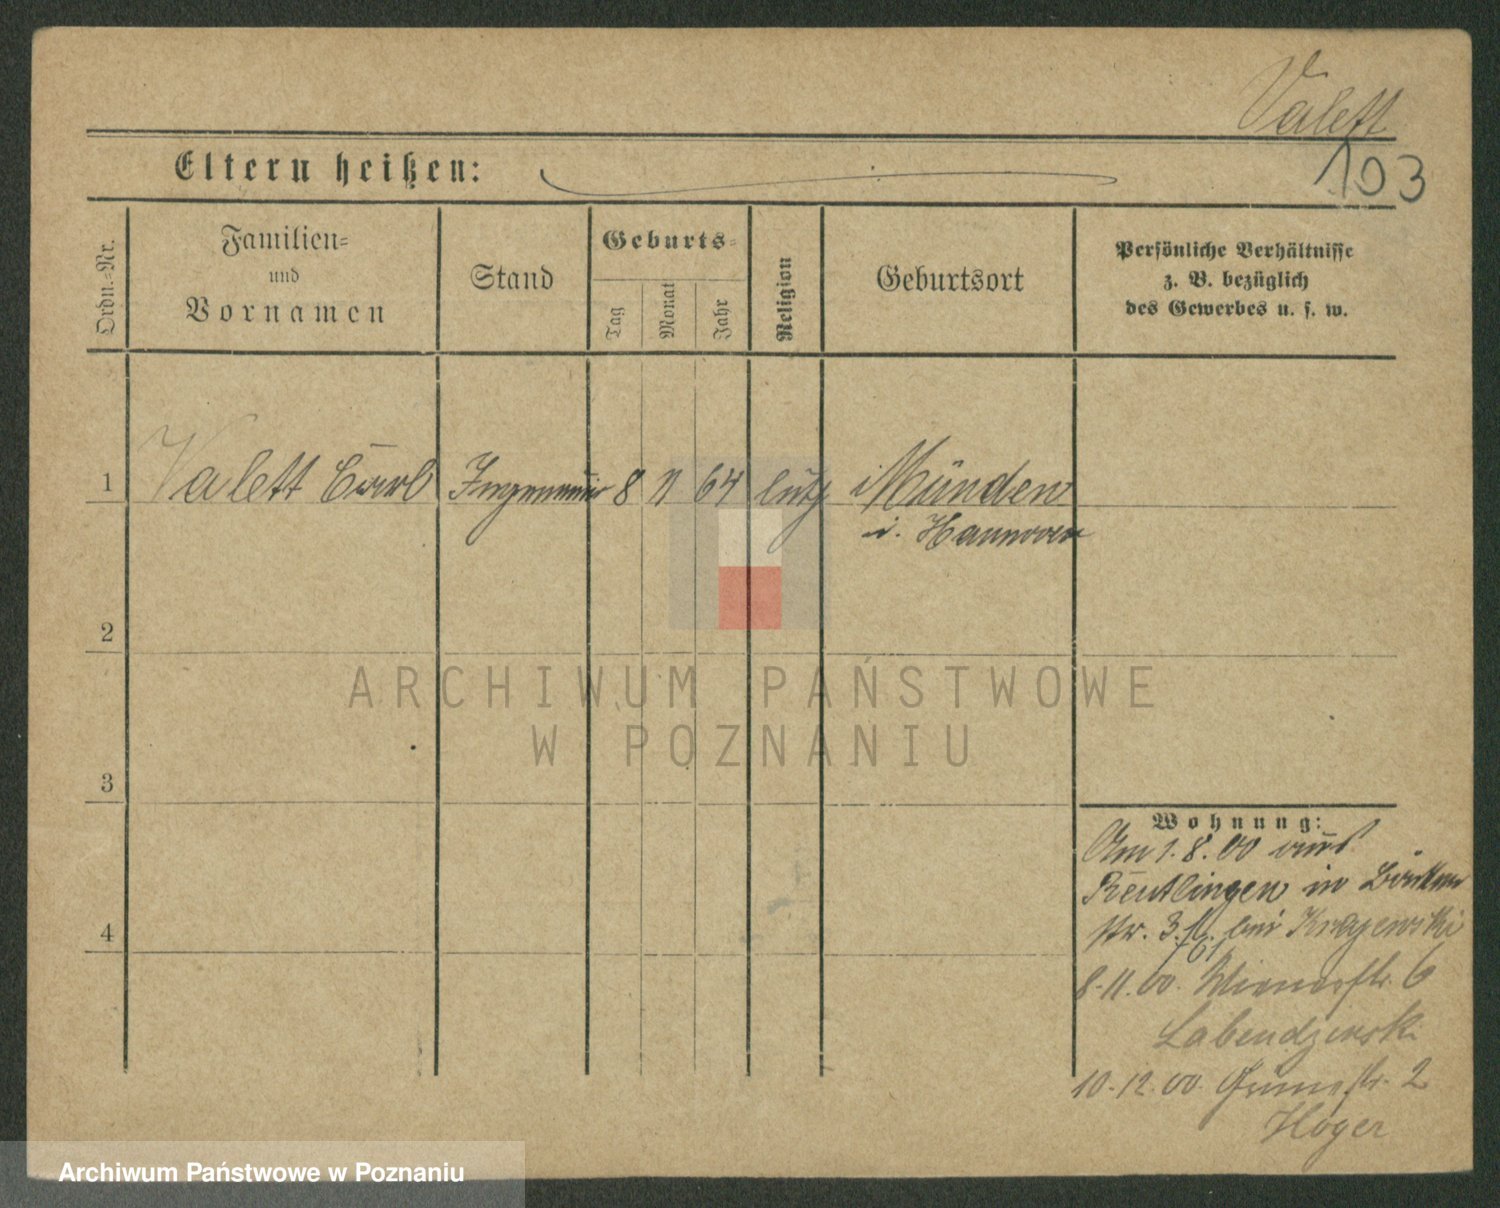 Valett
103
Eltern heißen:
Ordn.=Nr.
Familien=
und
Vornamen
Stand
Geburts=
Tag
Monat
Jahr
Religion
Geburtsort
Persönliche Verhältnisse
z. B. bezüglich
des Gewerbes u. s. w.
1 Valett Carl Ingenieur 8 11 64 luth Münden
i. Hannover
2
ARCHIWUM PAŃSTWOWE
W POZNANIU
3
Wohnung:
Am 1. 8. 00 aus
Reutlingen in
str. 3. bei Krajewski
8-11.00. Wienerstr. 6
Labendzewski
10-12.00. str. 2
Höger
4
Archiwum Państwowe w Poznaniu